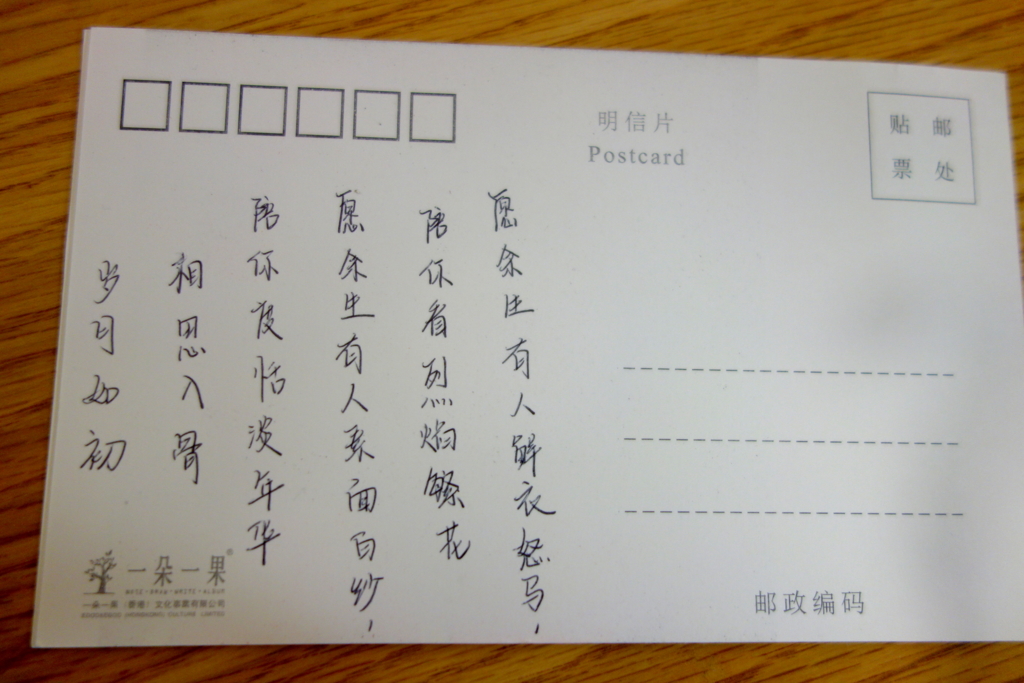 明信片
Postcard
贴邮
票处
愿余生有人鲜衣怒马，
陪你看烈焰繁花
愿余生有人素面白纱，
陪你度恬淡年华
相思入骨
岁月如初
一朵一果®
邮政编码